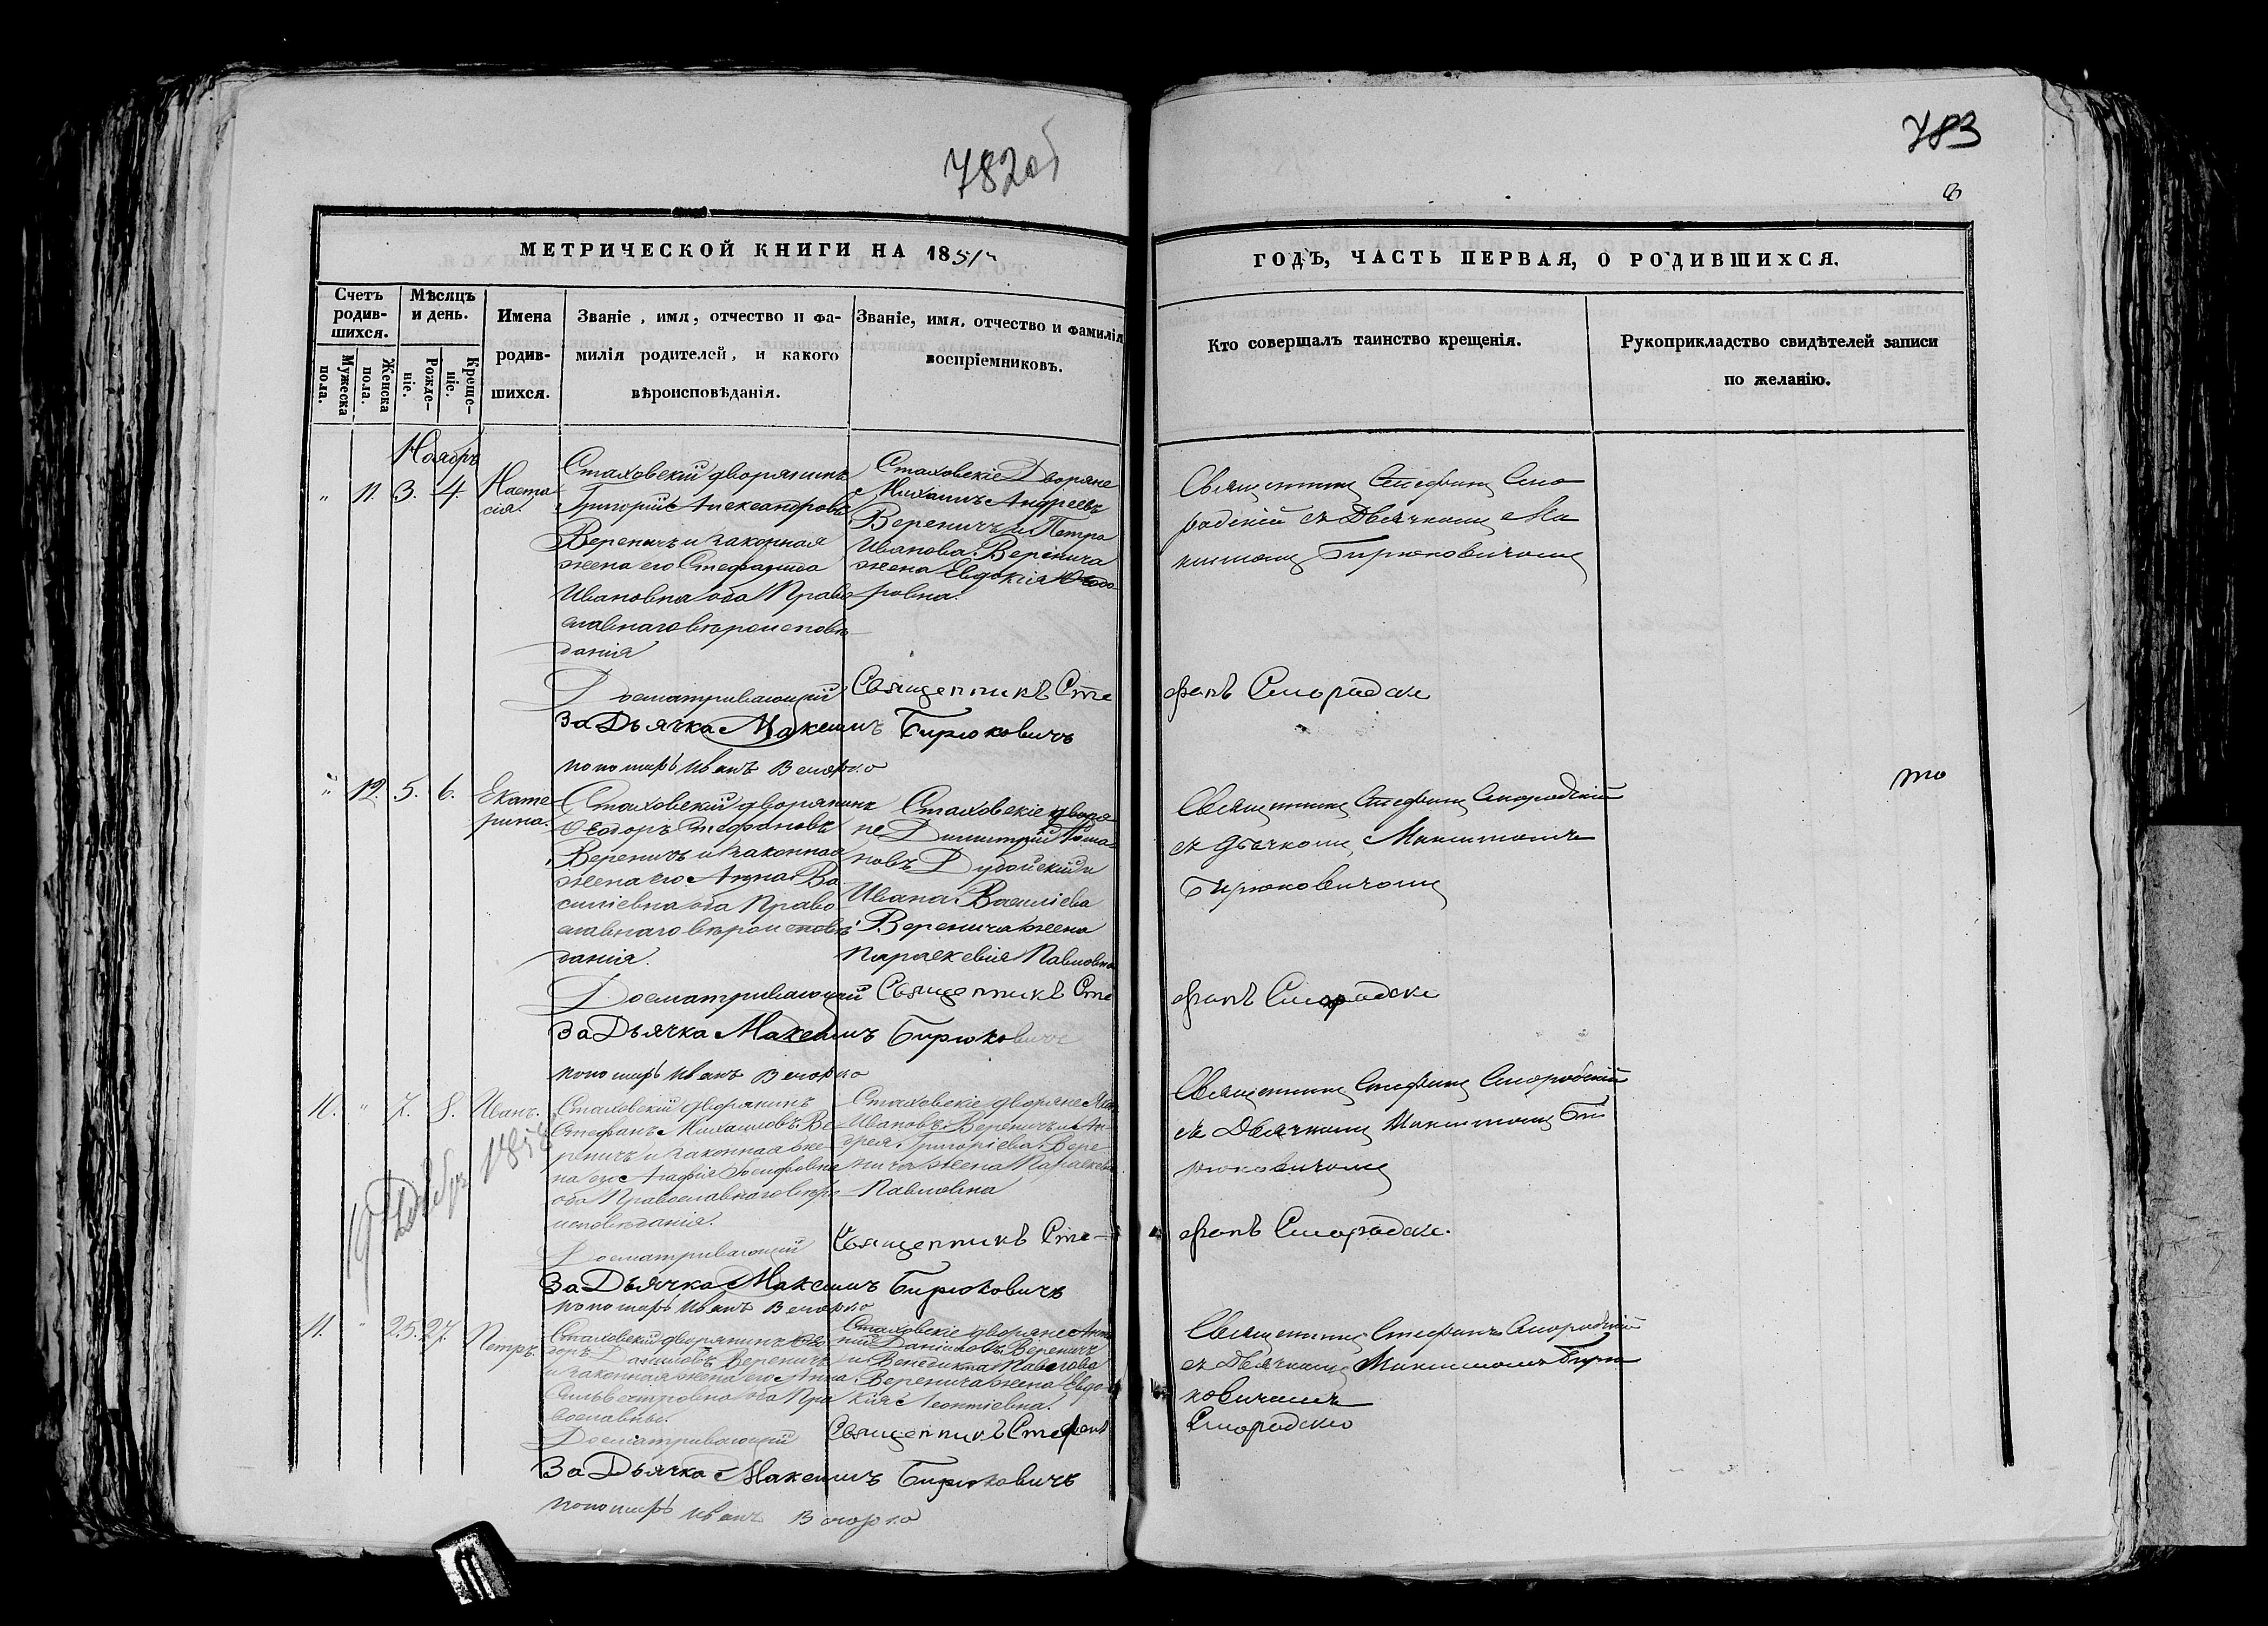 782 об
783
МЕТРИЧЕСКОЙ КНИГИ НА 1851
ГОДЪ, ЧАСТЬ ПЕРВАЯ, О РОДИВШИХСЯ.
Счетъ родив-шихся.
Мужеска пола.
Женска пола.
Мѣсяцъ и день.
Рожде-ніе.
Креще-ніе.
Имена
родив-
шихся.
Званіе, имя, отчество и фа-
милія родителей, и какого
вѣроисповѣданія.
Званіе, имя, отчество и фамилія
воспріемниковъ.
Кто совершалъ таинство крещенія.
Рукоприкладство свидѣтелей записи
по желанію.
Ноябрь
" 11. 3. 4. Наста
сія.
Стаховскій дворянинъ
Григорій Александровъ
Вереничъ и законная
жена его Стефанида
Ивановна оба Право
славнаго вѣроисповѣ
данія
Стаховскіе Дворяне
Михаилъ Андреевъ
Вереничъ и Петра
Иванова Веренича
жена Евдокія Ѳеодо
ровна.
Священникъ Стефанъ Смо
родскій съ Дьячкомъ Ма
ксимомъ Бирюковичомъ
Досматривающій Священникъ Сте
фанъ Смородски
За Дьячка Максимъ Бирюковичъ
пономарь Иванъ Вечорко
" 12. 5. 6. Екате
рина.
Стаховскій дворянинъ
Ѳеодоръ Стефановъ
Вереничъ и законная
жена его Анна Ва
силіевна оба Право
славнаго вѣроисповѣ
данія.
Стаховскіе дворя
не Димитрій Рома
новъ Дубойскій и
Ивана Василіева
Веренича жена
Параскевія Павловна
Священникъ Стефанъ Смородскій
съ дьячкомъ Максимомъ
Бирюковичомъ
Досматривающій Священникъ Сте
фанъ Смородски
За Дьячка Максимъ Бирюковичъ
пономарь Иванъ Вечорко
10. " 7. 8. Иванъ.
Стаховскій дворянинъ
Стефанъ Михаиловъ Ве
реничъ и законная же
на его Агафія Іосифовна
оба Православнаго вѣро
исповѣданія.
Стаховскіе дворяне
Ивановъ Вереничъ и Ан
дрея Григоріева Вере
нича жена Параскевія
Павловна
Священникъ Стефанъ Смородскій
съ Дьячкомъ Максимомъ Би
рюковичомъ
Досматривающій Священникъ Сте-
фанъ Смородски.
За Дьячка Максимъ Бирюковичъ
пономарь Иванъ Вечорко
11. " 25. 27. Петръ.
Стаховскій дворянинъ Ѳео
доръ Даниловъ Вереничъ
и законная жена его Анна
Сильвестровна оба Пра
вославны.
Стаховскіе дворяне
Даніиловъ Вереничъ
и Венедикта Павлова
Веренича жена Евдо
кія Леонтіевна.
Священникъ Стефанъ Смородскій
съ Дьячкомъ Максимомъ Бирю
ковичемъ
Досматривающій Священникъ Стефанъ
Смородски
За Дьячка Максимъ Бирюковичъ
пономарь Иванъ Вечорко